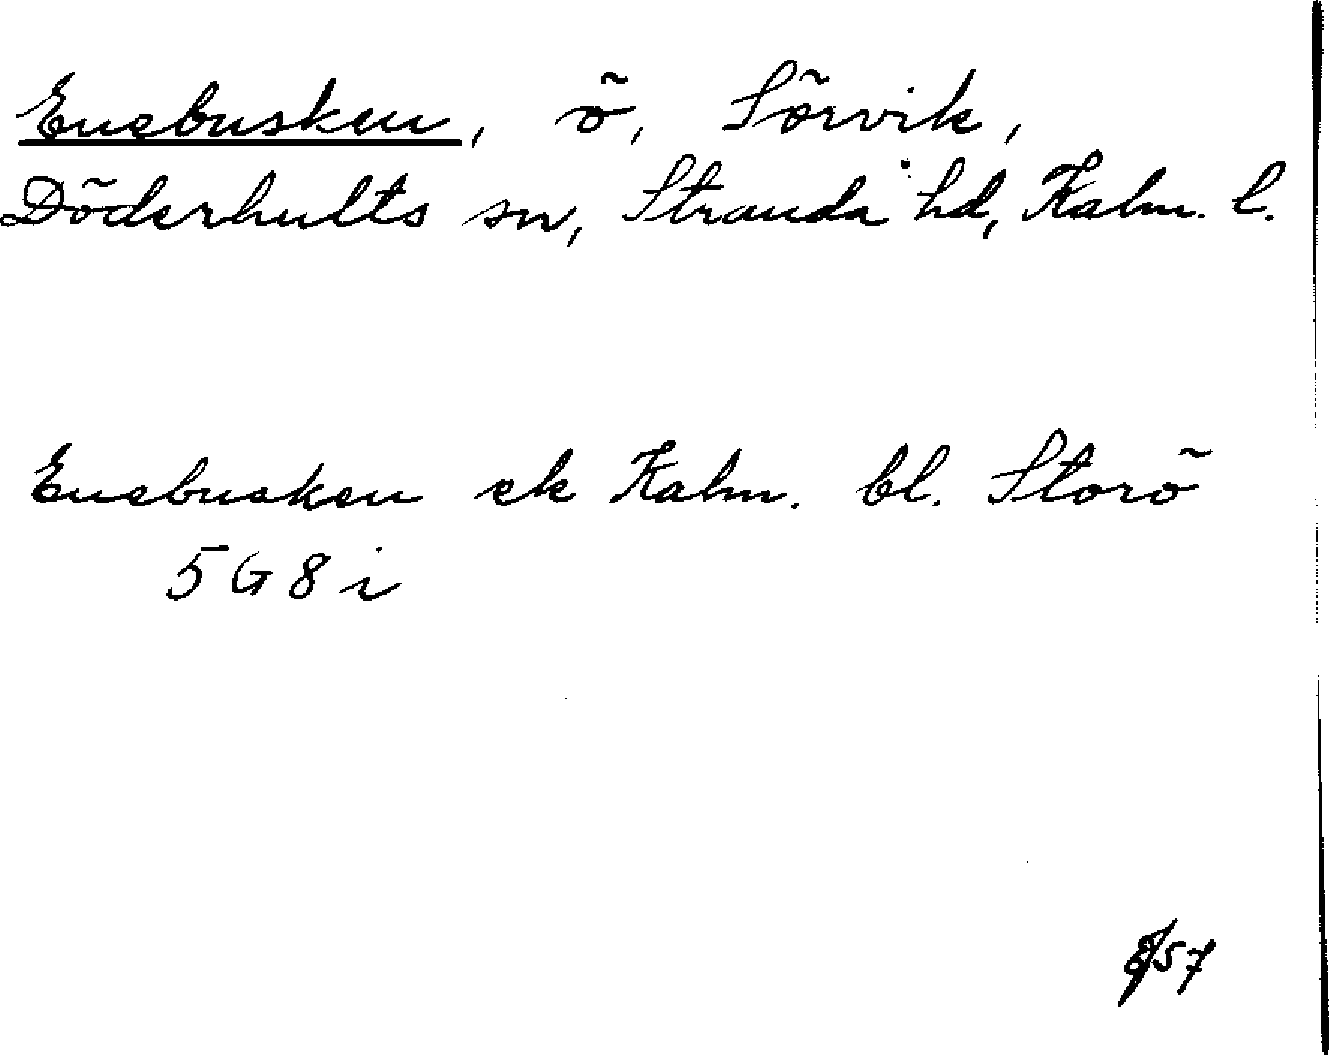 Enebusken, ö, Sörvik,
Döderhults sn, Stranda hd, Kalm. l.
Enebusken ek Kalm. bl. Storö
5 G 8 i
57